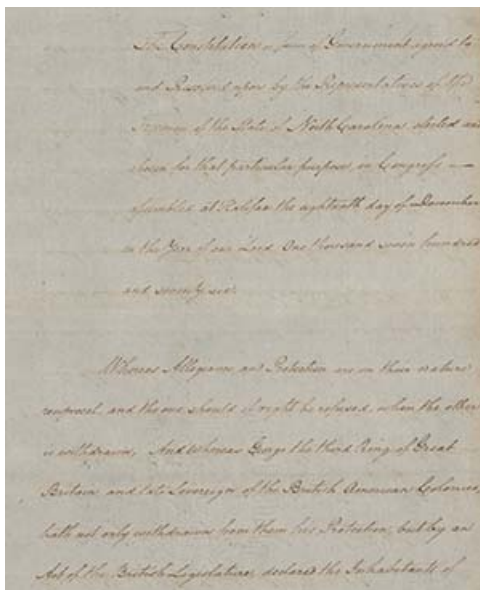 The Constitution or form of Government agreed to
and Resolved upon by the Representatives of the
Freemen of the State of North Carolina, elected and
chosen for that particular purpose, in Congress
assembled at Halifax the eighteenth day of December
in the Year of our Lord One thousand seven hundred
and seventy six.
Whereas Allegiance and Protection are in their nature
reciprocal, and the one should of right be refused when the other
is withdrawn, And whereas George the third King of Great
Britain and late Sovereign of the British American Colonies,
hath not only withdrawn from them his Protection, but by an
Act of the British Legislature, declared the Inhabitants of